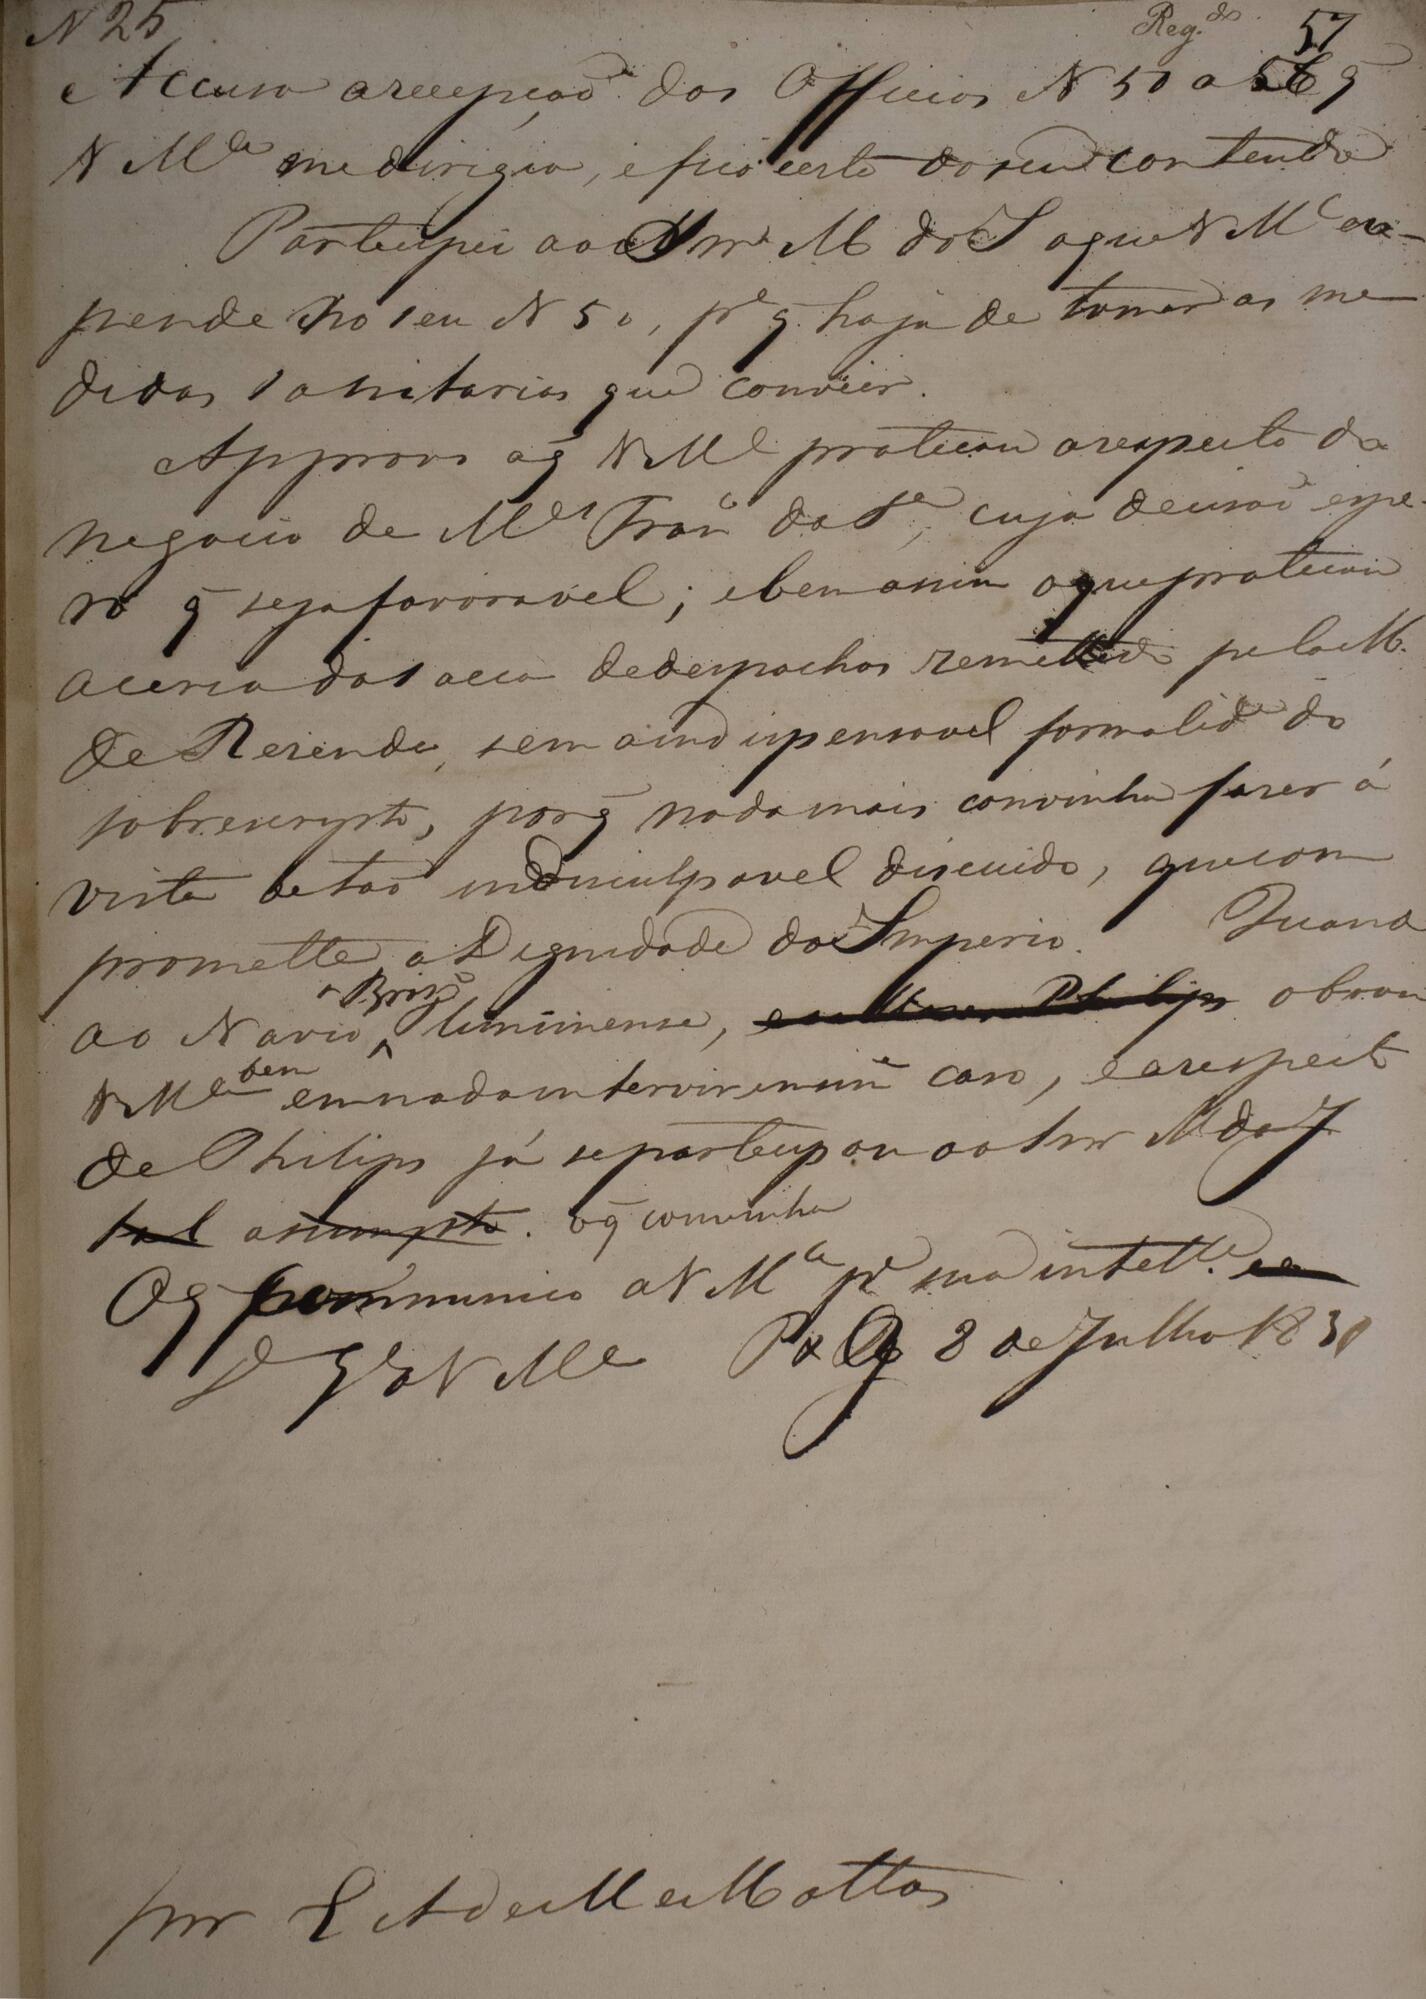 N 25 Reg.do 57
Accuso a recepção dos Officios N 50 a 56 q̃
V Mce me dirigio, e fico certo do seu contendo
Participei ao Snr M do I o que V Mce ex-
pende no seu N 50, pa q̃ haja de tomar as me-
didas sanitarias que convier.
Approvo o q̃ V Mce praticou a respeito do
negocio de Mel Franco da Sa, cuja decisão espe-
ro q̃ seja favoravel; e bem assim o que praticou
acerca do saco de despachos remettido pelo M.
de Rezende, sem a indispensavel formalide do
sobrescripto, porq̃ nada mais convinha fazer á
vista de tão indisculpavel discuido, que com
promette a Dignidade do Imperio. Quand
ao Navio Brigue luminense, Philips obrou
V Mce bem em nada intervir em simᵉ caso, e a respeito
de Philips já se participou ao Snr M da J
tal assumpto. o q̃ convinha
O q̃ communico a V Mce pa sua intellia.
D Gde a V Mce Po 8 de Julho 1830
Snr E A de M e Mattos